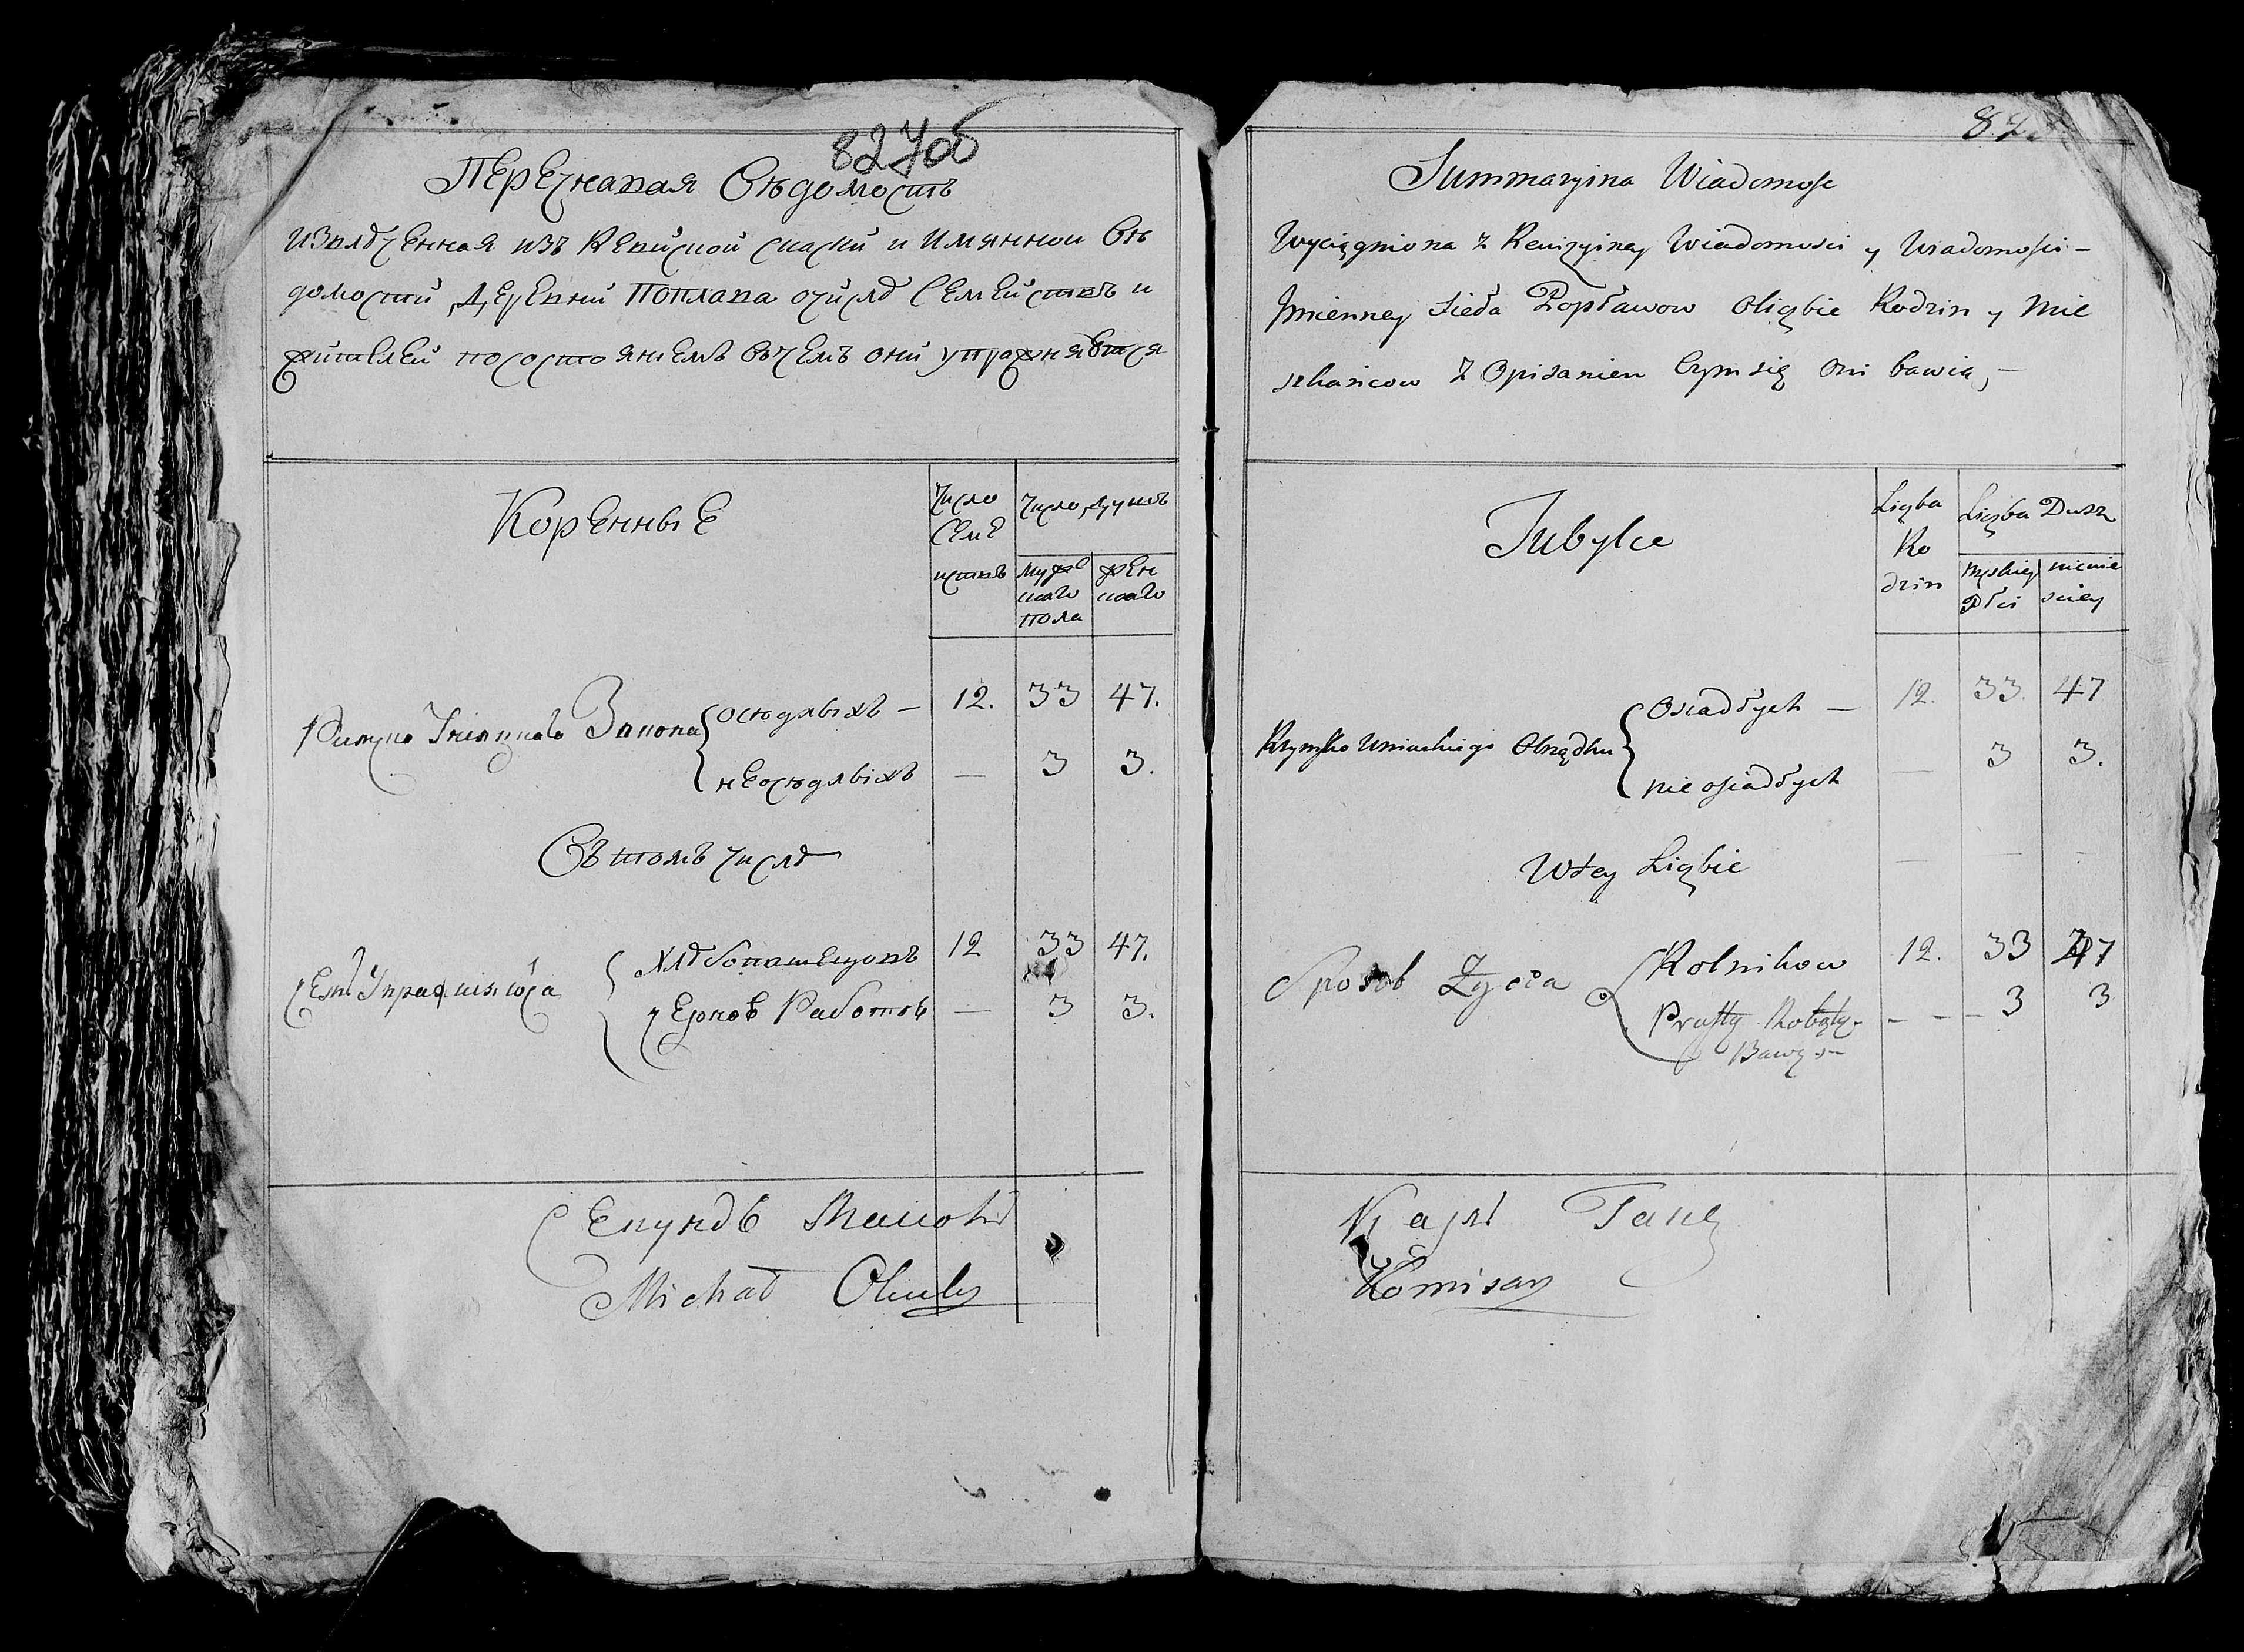 827об
Перечневая Вѣдомость
извлѣченная изъ Ревиской скаски и Имяннои Вѣ
домости Деревни Поплава очислѣ Семействъ и
жителей посостояниемъ вчемъ они упражняются
Коренные
Число
Семе
иствъ
Число Душъ
Муже
скаго
пола
жен
скаго
Римско Униацкаго Закона
осѣдлыхъ — 12. 33 47.
неосѣдлыхъ — 3 3.
Въ томъ числѣ
Хлѣбопашецовъ 12 33 47.
Работою — 3 3.
Michał
Summaryina Wiadomość
Wyciągniona z Rewizyiney Wiadomości y Wiadomości –
Jmienney Sieła Popławow oliczbie Rodzin y Mie
szkańcow z Opisaniem Czym się oni bawią, –
Tubylce
Liczba
Ro
dzin
Liczba Dusz
Męskiey
Płci
niewie
sciey
Rzymsko Uniackiego Obrządku
Osiadłych — 12. 33. 47
nie osiadłych — 3 3.
Wtey Liczbie — — —
Sposob Zycia
Rolnikow 12. 33 47
Prostą Robotą - - - 3 3
Карл
Komisarz